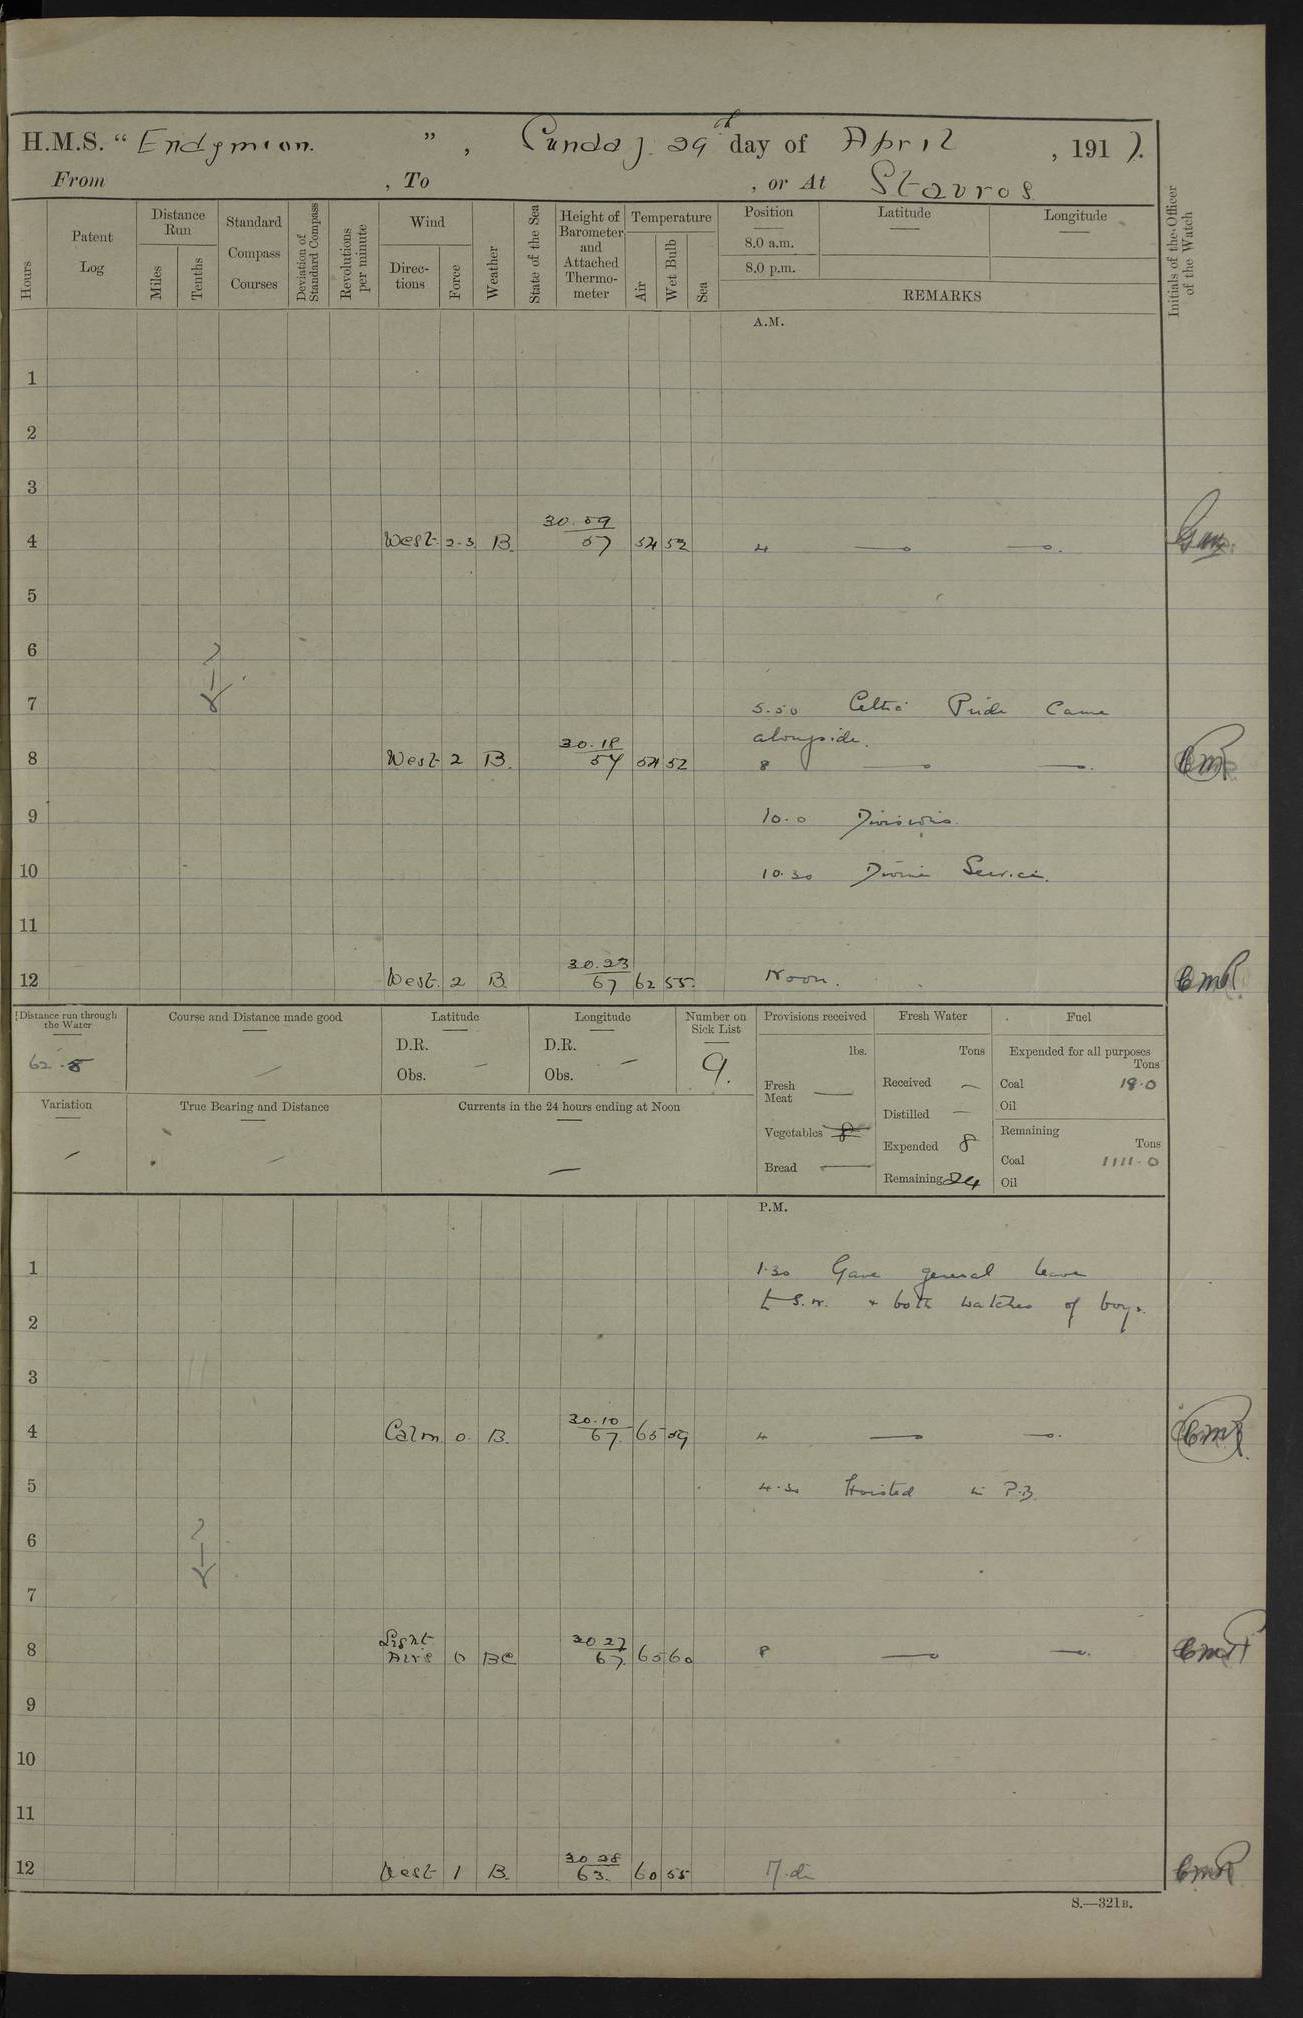 H.M.S. "Endymion.", Sunday. 29th day of April, 1917.
From , To , or At Stavros
Hours
Patent Log
Distance Run
Miles
Tenths
Standard Compass Courses
Deviation of Standard Compass
Revolutions per minute
Wind
Direc-tions
Force
Weather
State of the Sea
Height of Barometer and Attached Thermo-meter
Temperature
Air
Wet Bulb
Sea
Position
8.0 a.m.
8.0 p.m.
Latitude
Longitude
REMARKS
Initials of the Officer of the Watch
A.M.
1
2
3
30.59
4 West. 2-3 B. 57 54 52 4
5
6
7 5.50 Celtic Pride Came
alongside.
30.18
8 West 2 B. 54 54 52 8
9 10.0 Divisions.
10 10.30 Divine Service.
11
30.23
12 West. 2 B. 67 62 55. Noon. CMR
Distance run through the Water
62.8
Course and Distance made good
Latitude
D.R.
Obs. –
Longitude
D.R.
Obs. –
Number on Sick List
9.
Provisions received
lbs.
Fresh Meat —
Vegetables 8
Bread —
Fresh Water
Tons
Received –
Distilled –
Expended 8
Remaining 24
Fuel
Expended for all purposes
Tons
Coal 18.0
Oil
Remaining
Tons
Coal 1111.0
Oil
Variation
–
True Bearing and Distance
–
Currents in the 24 hours ending at Noon
–
P.M.
1 1.30 Gave general leave
to S.W. + both watches of boys.
2
3
30.10
4 Calm 0. B. 67. 65 59 4 CMR
5 4.30 Hoisted in P.B.
6
7
Light 30 27
8 Airs 0 BC 67. 65 60 8 CMR
9
10
11
30 28
12 West 1 B. 63. 60 55 CMR
S.—321B.